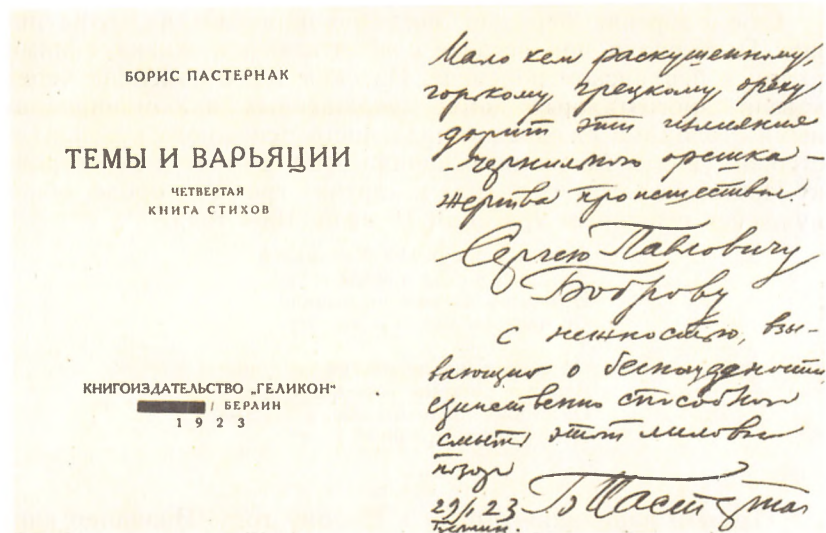 БОРИС ПАСТЕРНАК
ТЕМЫ И ВАРЬЯЦИИ
ЧЕТВЕРТАЯ
КНИГА СТИХОВ
КНИГОИЗДАТЕЛЬСТВО „ГЕЛИКОН“
/ БЕРЛИН
1 9 2 3
Мало кем раскушенному,
горькому грецкому ореху
дарит эти излияния
- чернильного орешка -
жертва происшествия.
Сергею Павловичу
Боброву
с нежностью, взы-
вающею о
единственно способной
смыть этот лиловый
позор
Б Пастернак
29/I 23
Берлин.